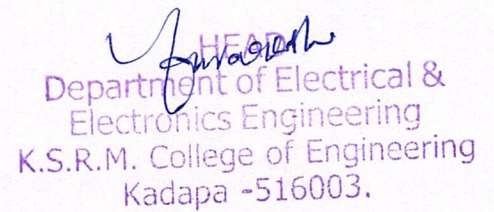 HEAD
Department of Electrical &
Electronics Engineering
K.S.R.M. College of Engineering
Kadapa -516003.